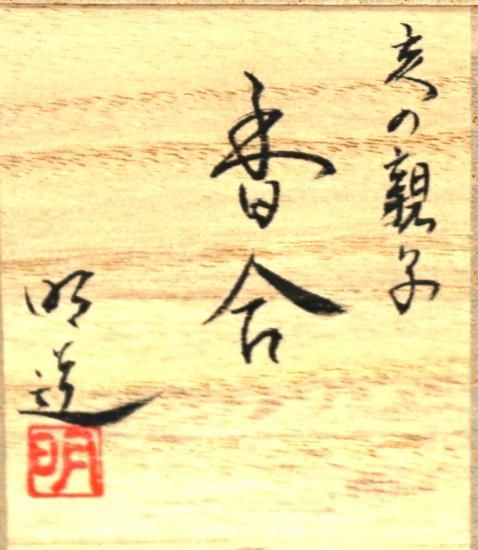 亥の親子
香合
明造
明